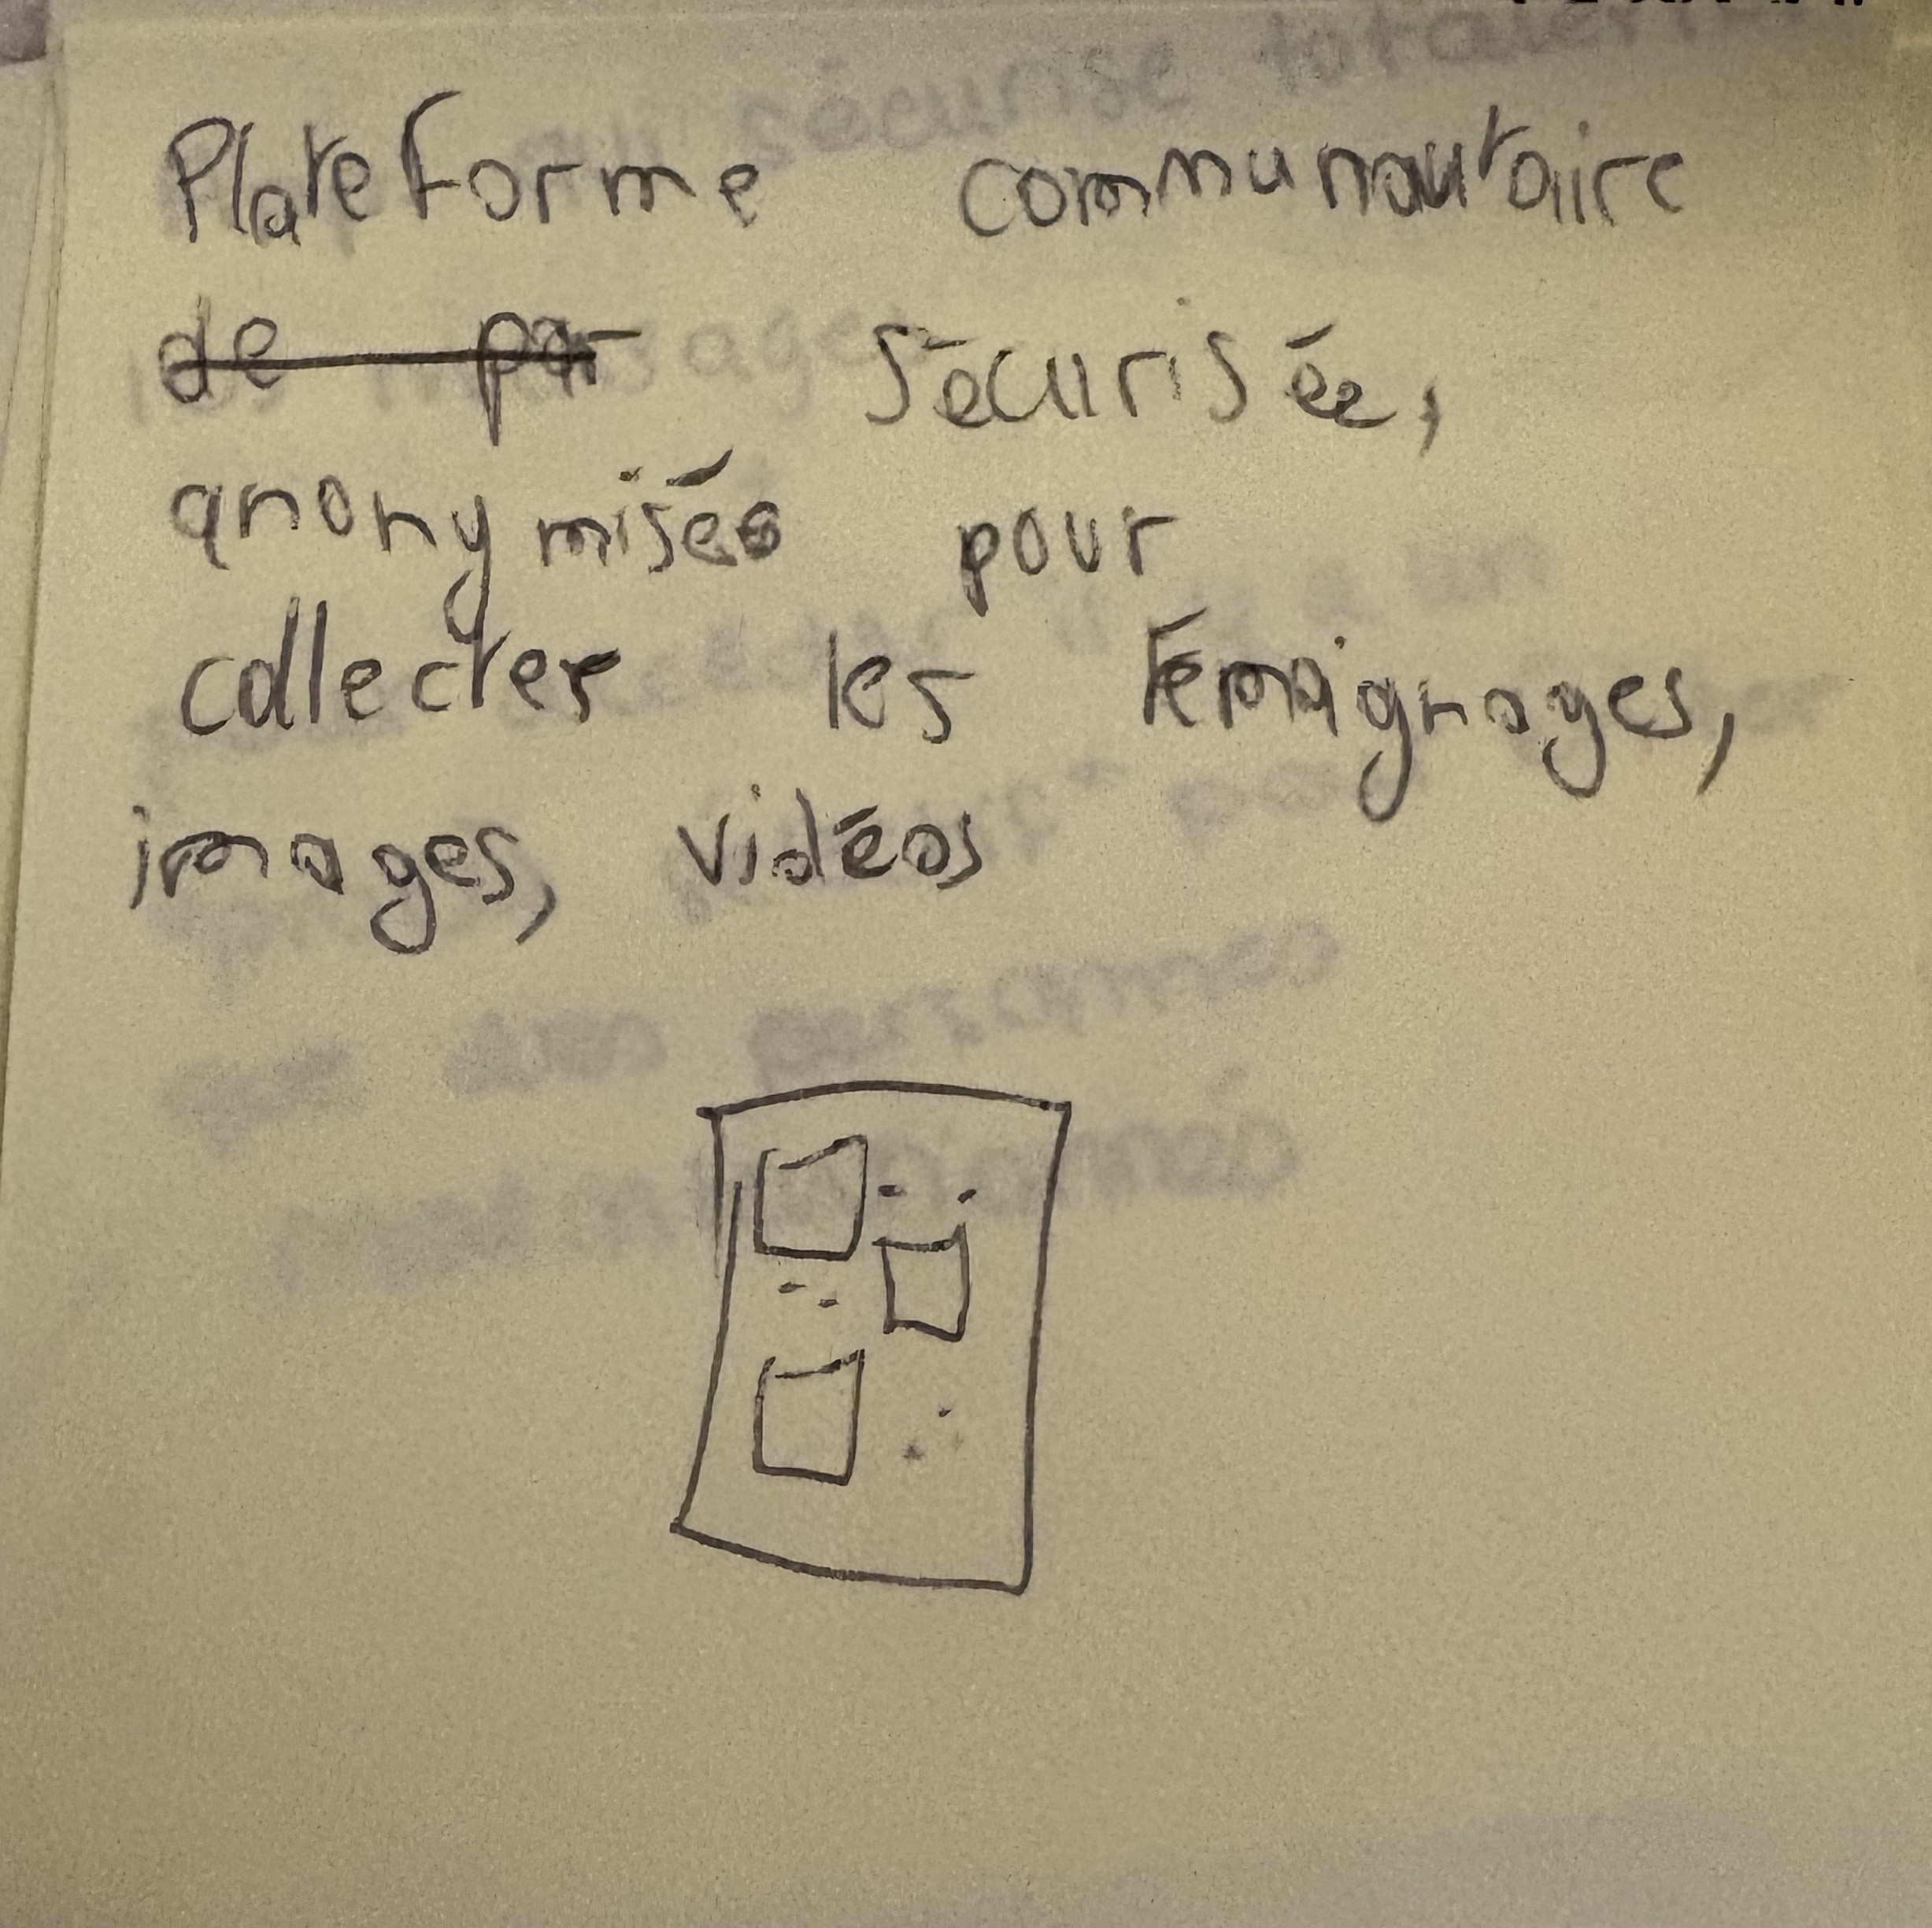 Plateforme communautaire
de par sécurisée,
anonymisée pour
collecter les témoignages,
images, vidéos